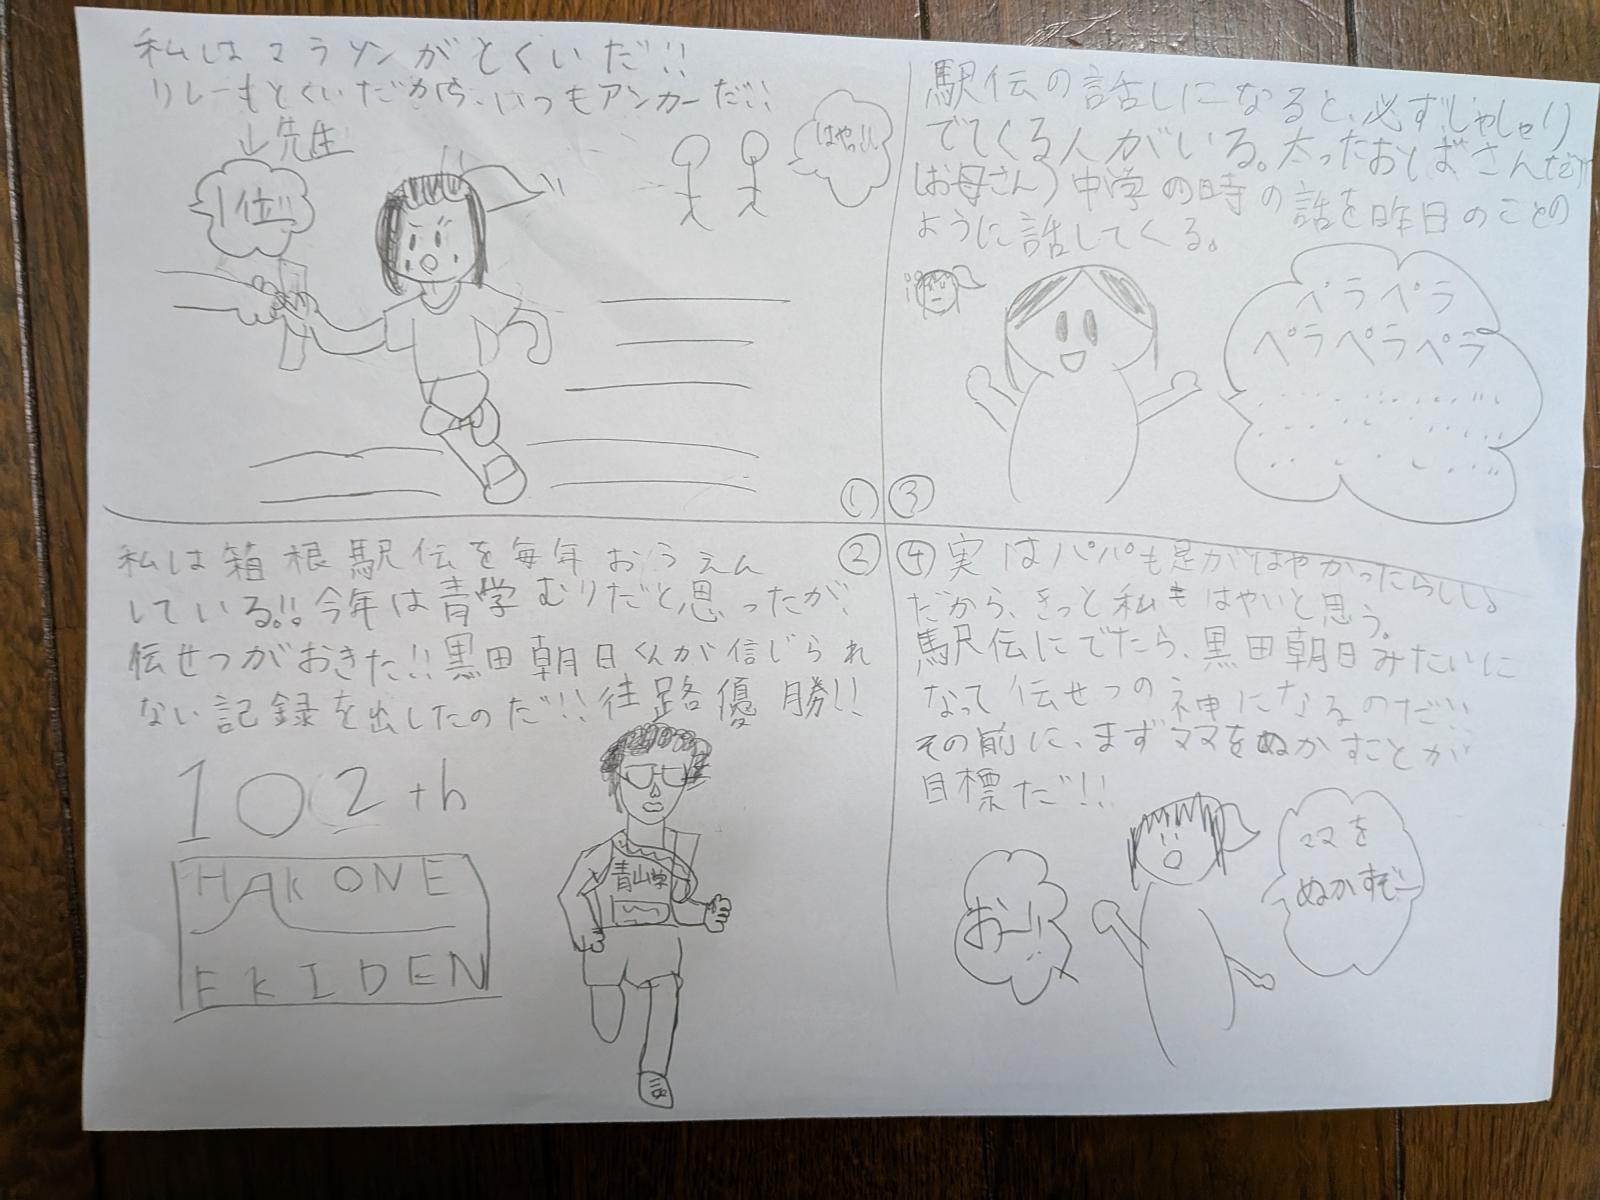 私はマラソンがとくいだ!!
リレーもとくいだから、いつもアンカーだ!!
↓先生
1位!!
はやっ!!
①
私は箱根駅伝を毎年おうえん
している!!今年は青学むりだと思ったが、
伝せつがおきた!!黒田朝日くんが信じられ
ない記録を出したのだ!!往路優勝!!
②
102th
HAKONE
EKIDEN
青山学
駅伝の話しになると、必ずしゃしゃり
でてくる人がいる。太ったおばさんだ!!
(お母さん)中学の時の話を昨日のことの
ように話してくる。
ペラペラ
ペラペラペラ
③
④実はパパも足がはやかったらしい。
だから、きっと私もはやいと思う。
駅伝にでたら、黒田朝日みたいに
なって伝せつの神になるのだ!!
その前に、まずママをぬかすことが
目標だ!!
おー!!
ママを
ぬかすぞー